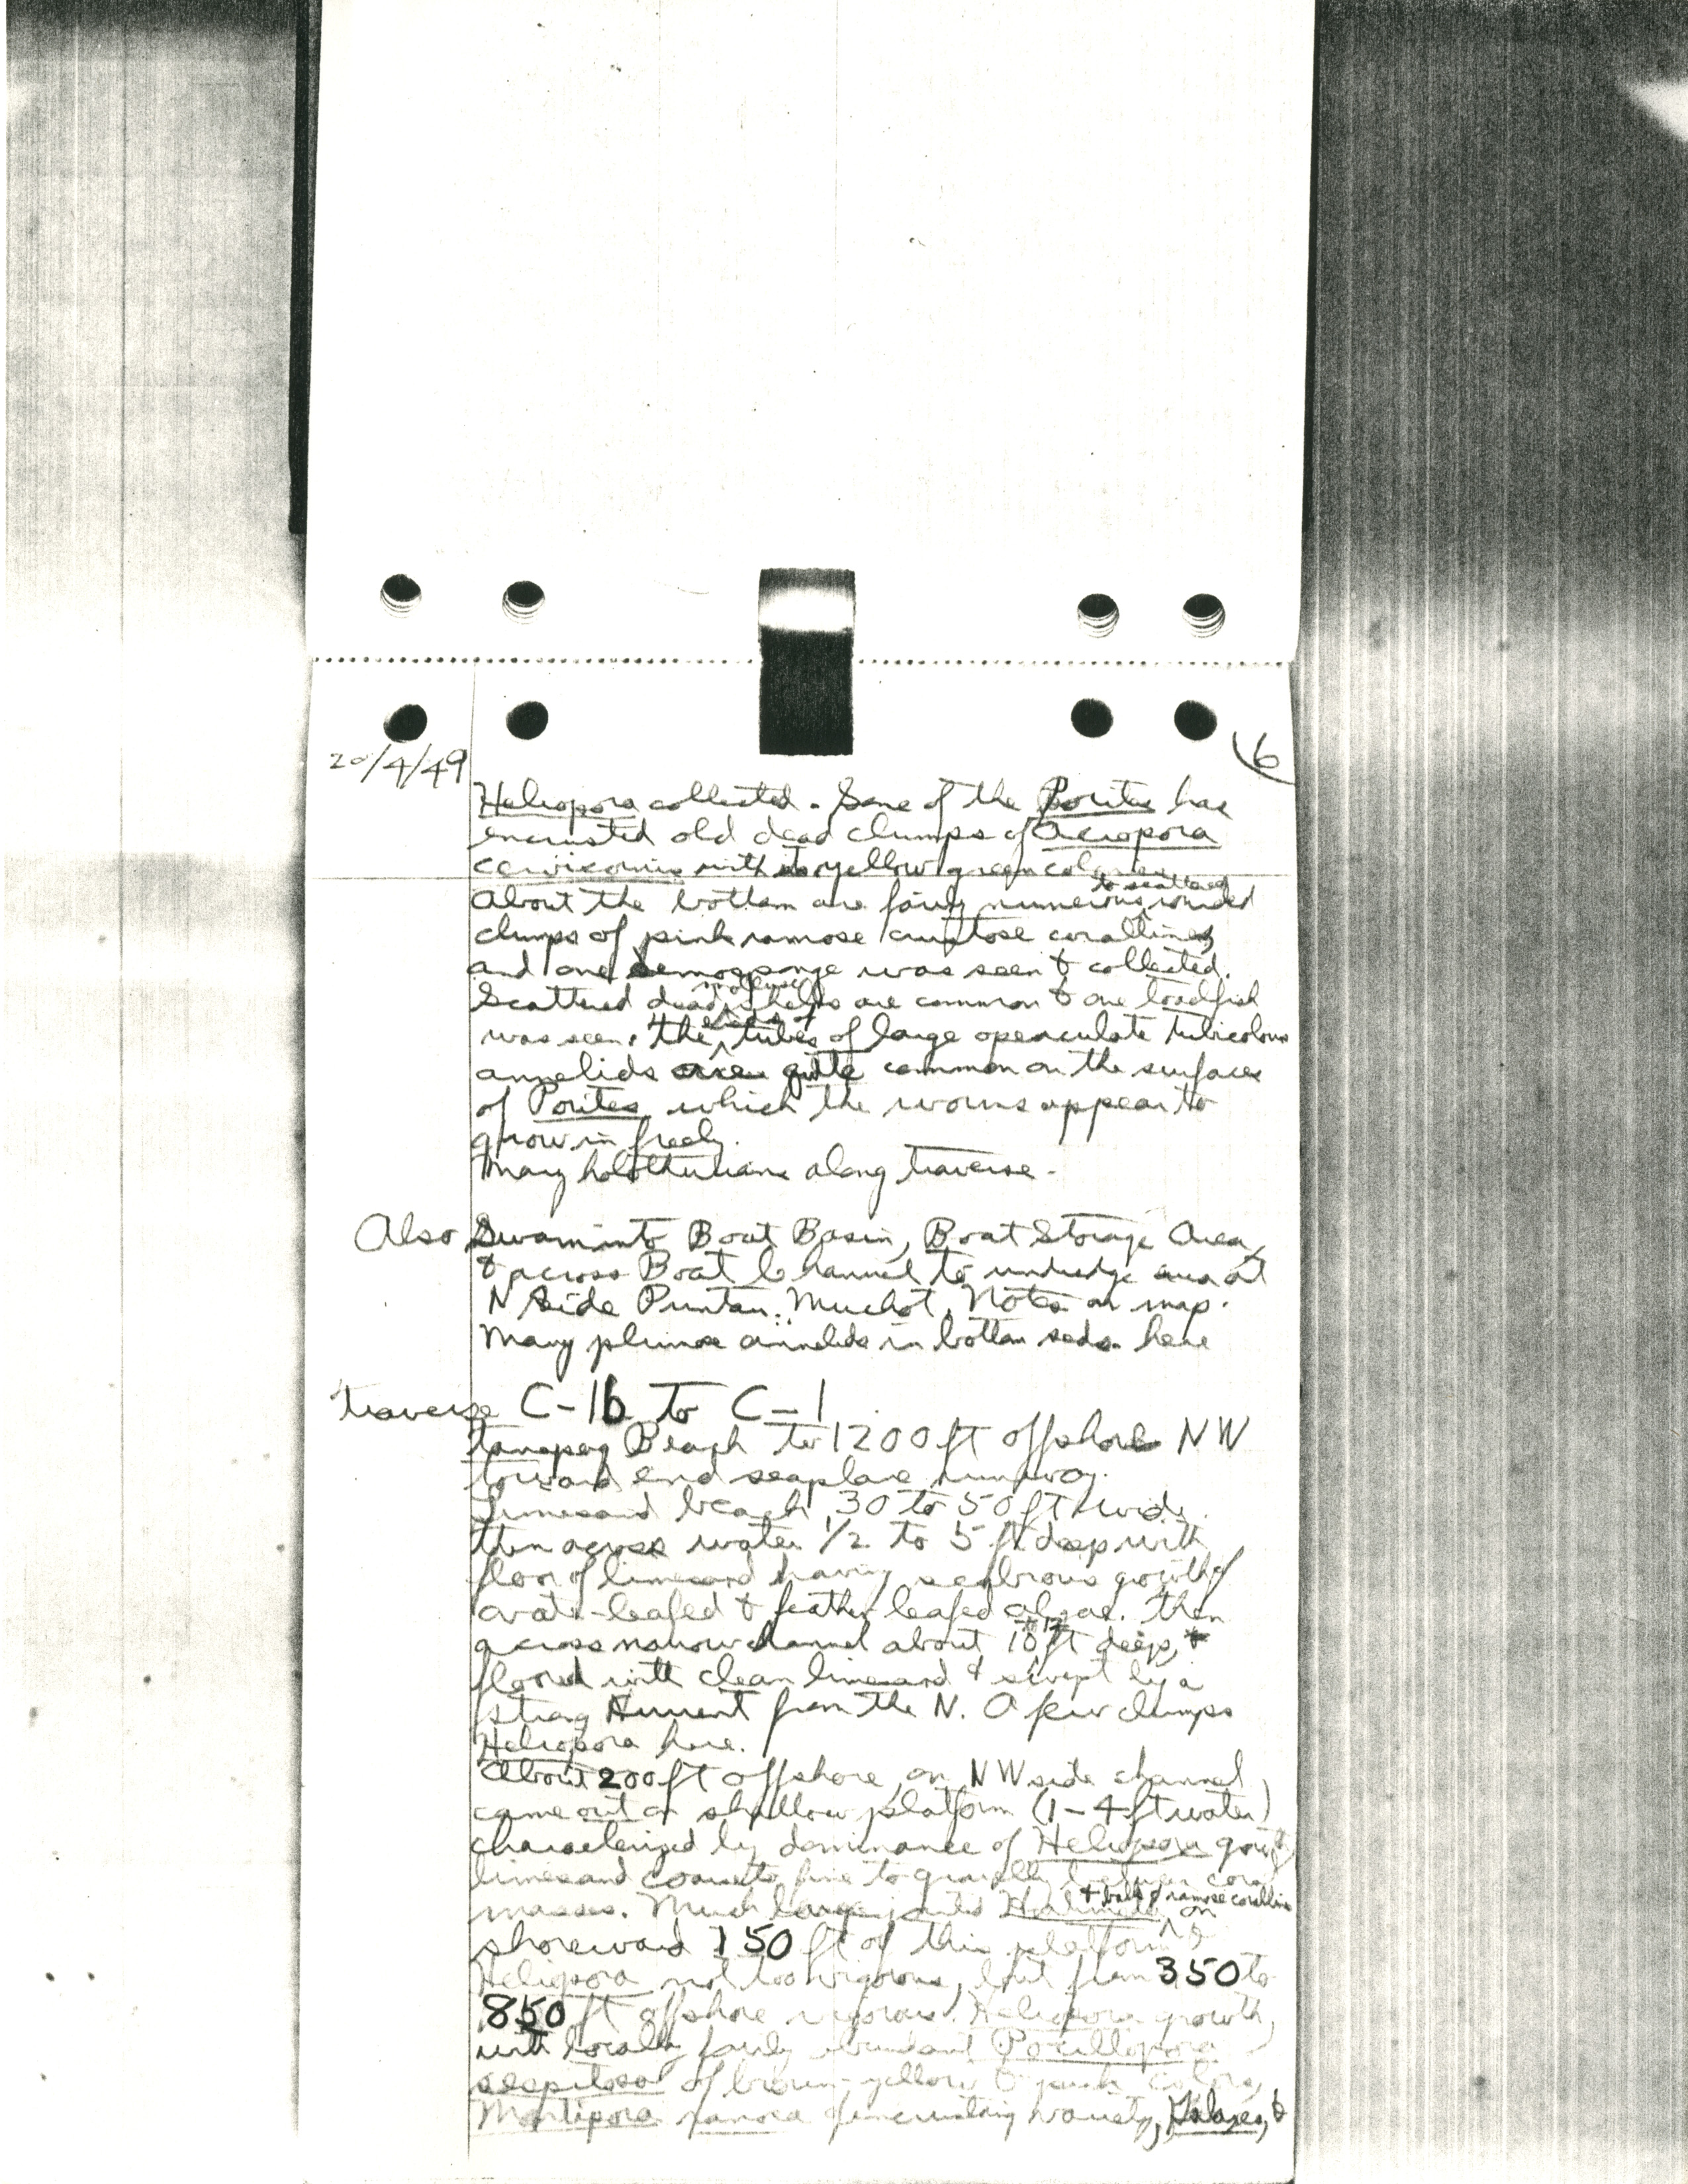 20/4/49
6
Heliopora collected. Some of the Porites has
encrusted old dead clumps of Acropora
cervicornis with yellow green colonies
to scattered
About the bottom are fairly numerous rounded
clumps of pink ramose crustose corallines
and one demosponge was seen & collected.
mollusc
Scattered dead shells are common & one toadfish
was seen. The tubes of large operculate tubicolous
annelids are quite common on the surfaces
of Porites which the worms appear to
grow in freely.
Many holothurians along traverse.
Also Swam into Boat Basin, Boat Storage Area,
& across Boat Channel to area at
N side Puntan Muchot. Notes on map.
Many plumose annelids in bottom seds. here
Traverse C-16 to C-1
Tanapag Beach to 1200 ft offshore NW
toward end seaplane runway.
Limesand beach 30 to 50 ft wide.
then across water 1/2 to 5 ft deep with
floor of limesand having growth of
ovate-leafed & feather leafed algae. Then
across narrow channel about 10 ft deep, &
floored with clean limesand & swept by a
strong current from the N. A few clumps
Heliopora here.
About 200 ft offshore, on NW side channel,
came out on shallow platform (1-4 ft water)
characterized by dominance of Heliopora growth
limesand coarse to fine to gravelly between coral
& balls of ramose coralline
masses. Much large jointed Halimeda on
shoreward 150 ft of this platform &
Heliopora not too vigorous, but from 350 to
850 ft offshore vigorous Heliopora growth,
with locally fairly abundant Pocillopora
of brown, yellow & pink colors,
Montipora ramosa & encrusting variety, Galaxea, &